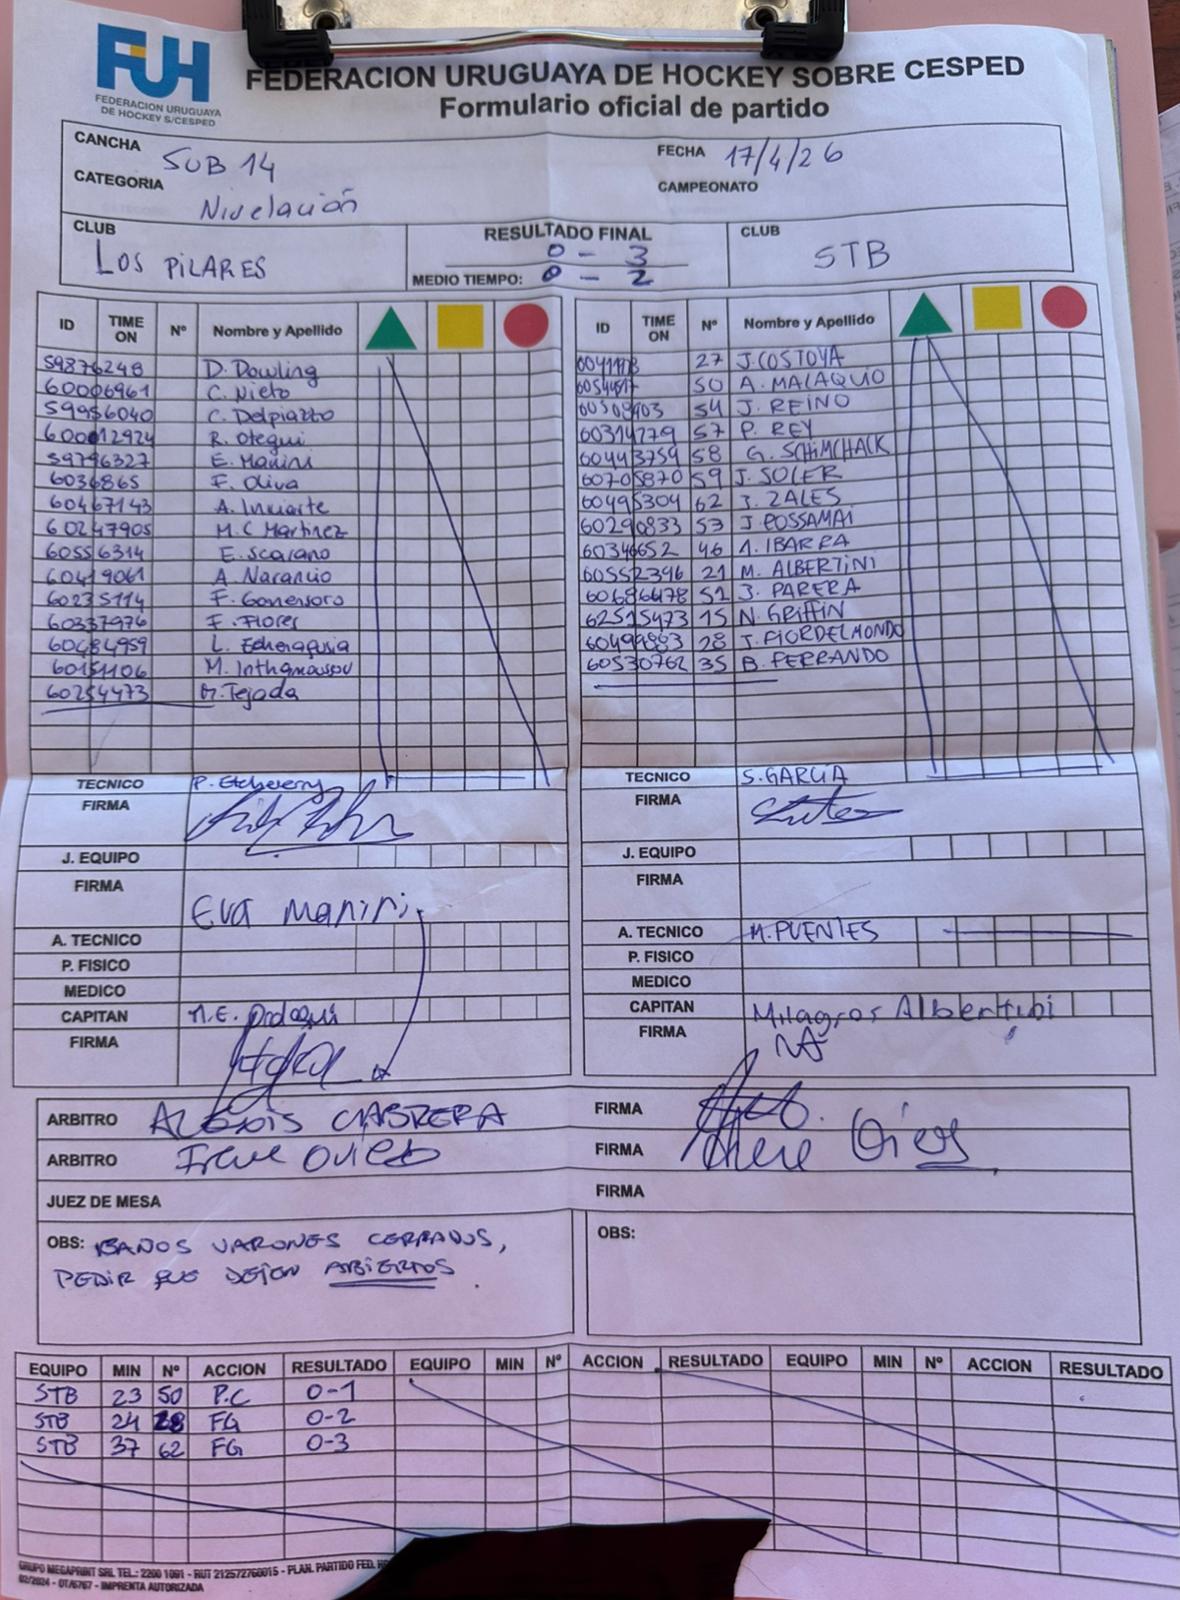 FUH
FEDERACION URUGUAYA
DE HOCKEY S/CESPED
FEDERACION URUGUAYA DE HOCKEY SOBRE CESPED
Formulario oficial de partido
CANCHA SUB 14 FECHA 17/4/26
CATEGORIA Nivelación CAMPEONATO
CLUB LOS PILARES
RESULTADO FINAL 0 - 3
MEDIO TIEMPO: 0 - 2
CLUB STB
ID TIME ON Nº Nombre y Apellido
59876248 D. Dowling
60006961 C. Nieto
59956040 C. Delpiazzo
600012924 R. Otegui
59796327 E. Manini
6036865 F. Oliva
60467143 A. Inciarte
60247905 M.C Martinez
60556314 E. Scarano
60419061 A. Narancio
60235114 F. Gomensoro
60337976 F. Flores
60484959 L.
60151106 M.
60254473 Tejada
ID TIME ON Nº Nombre y Apellido
27 J. COSTOYA
50 A. MALAQUIO
54 J. REINO
60314279 57 P. REY
60443759 58 G. SCHIMCHACK
60705870 59 J. SOLER
60495304 62 J. ZALES
60290833 53 J. POSSAMAI
60346652 46 IBARRA
60552396 21 M. ALBERTINI
60686478 52 J. PARERA
62515473 15 N. GRIFFIN
60499883 28 J. FIORDELMONDO
60530762 35 B. FERRANDO
TECNICO P. Etcheverry
FIRMA
J. EQUIPO
FIRMA Eva Manini
A. TECNICO
P. FISICO
MEDICO
CAPITAN M.E.
FIRMA
TECNICO S. GARCIA
FIRMA
J. EQUIPO
FIRMA
A. TECNICO M. PUENTES
P. FISICO
MEDICO
CAPITAN Milagros Albertini
FIRMA MA
ARBITRO ALEXIS CABRERA FIRMA
ARBITRO Irene Oviedo FIRMA
JUEZ DE MESA FIRMA
OBS: BAÑOS VARONES CERRADOS,
PEDIR QUE DEJEN ABIERTOS.
OBS:
EQUIPO MIN Nº ACCION RESULTADO EQUIPO MIN Nº ACCION RESULTADO EQUIPO MIN Nº ACCION RESULTADO
STB 23 50 P.C 0-1
STB 24 28 FG 0-2
STB 37 62 FG 0-3
GRUPO MEGAPRINT SRL TEL.: 2200 1091 - RUT 212572760015 - PLAN. PARTIDO FED.
02/2024 - OT/6767 - IMPRENTA AUTORIZADA